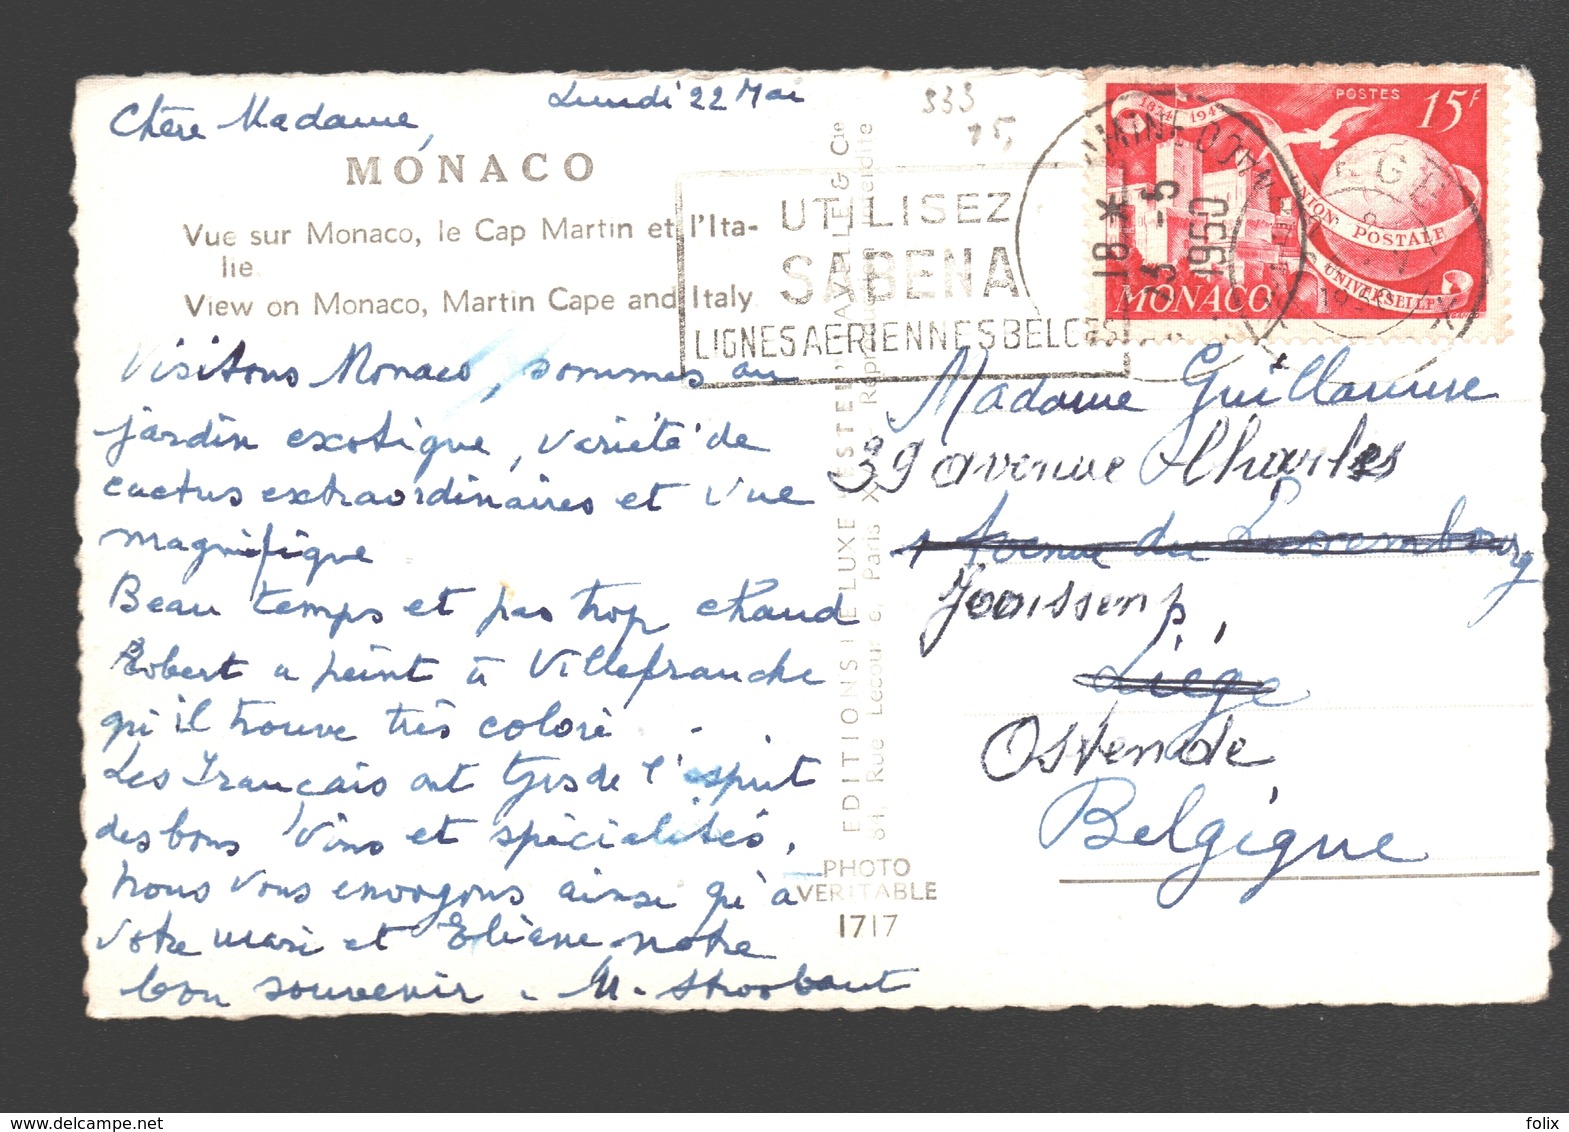 Lundi 22 Mai
Chère Madame,
MONACO
Vue sur Monaco, le Cap Martin et l'Ita-
lie.
View on Monaco, Martin Cape and Italy.
Visitons Monaco, sommes au
jardin exotique, variété de
cactus extraordinaires et vue
magnifique
Beau temps et pas trop chaud
Robert a peint à Villefranche
qu'il trouve très coloré.
Les Français ont tjrs de l'esprit
des bons vins et spécialités,
nous vous envoyons ainsi qu'à
votre mari et Eliane notre
bon souvenir. M. Stroobant
333
15
UTILISEZ
SABENA
LIGNES AERIENNES BELGES
18 *
-5
1950
POSTES
15F
1874 1949
UNION POSTALE
UNIVERSELLE
MONACO
EDITIONS DE LUXE "ESTEL" LAVELLE & Cie
81, Rue Lecourbe, Paris XV - Reproduction interdite
PHOTO
VERITABLE
1717
Madame Guillaume
39 avenue Charles
1 Avenue du Luxembourg
Janssens,
Liége
Ostende
Belgique
felix